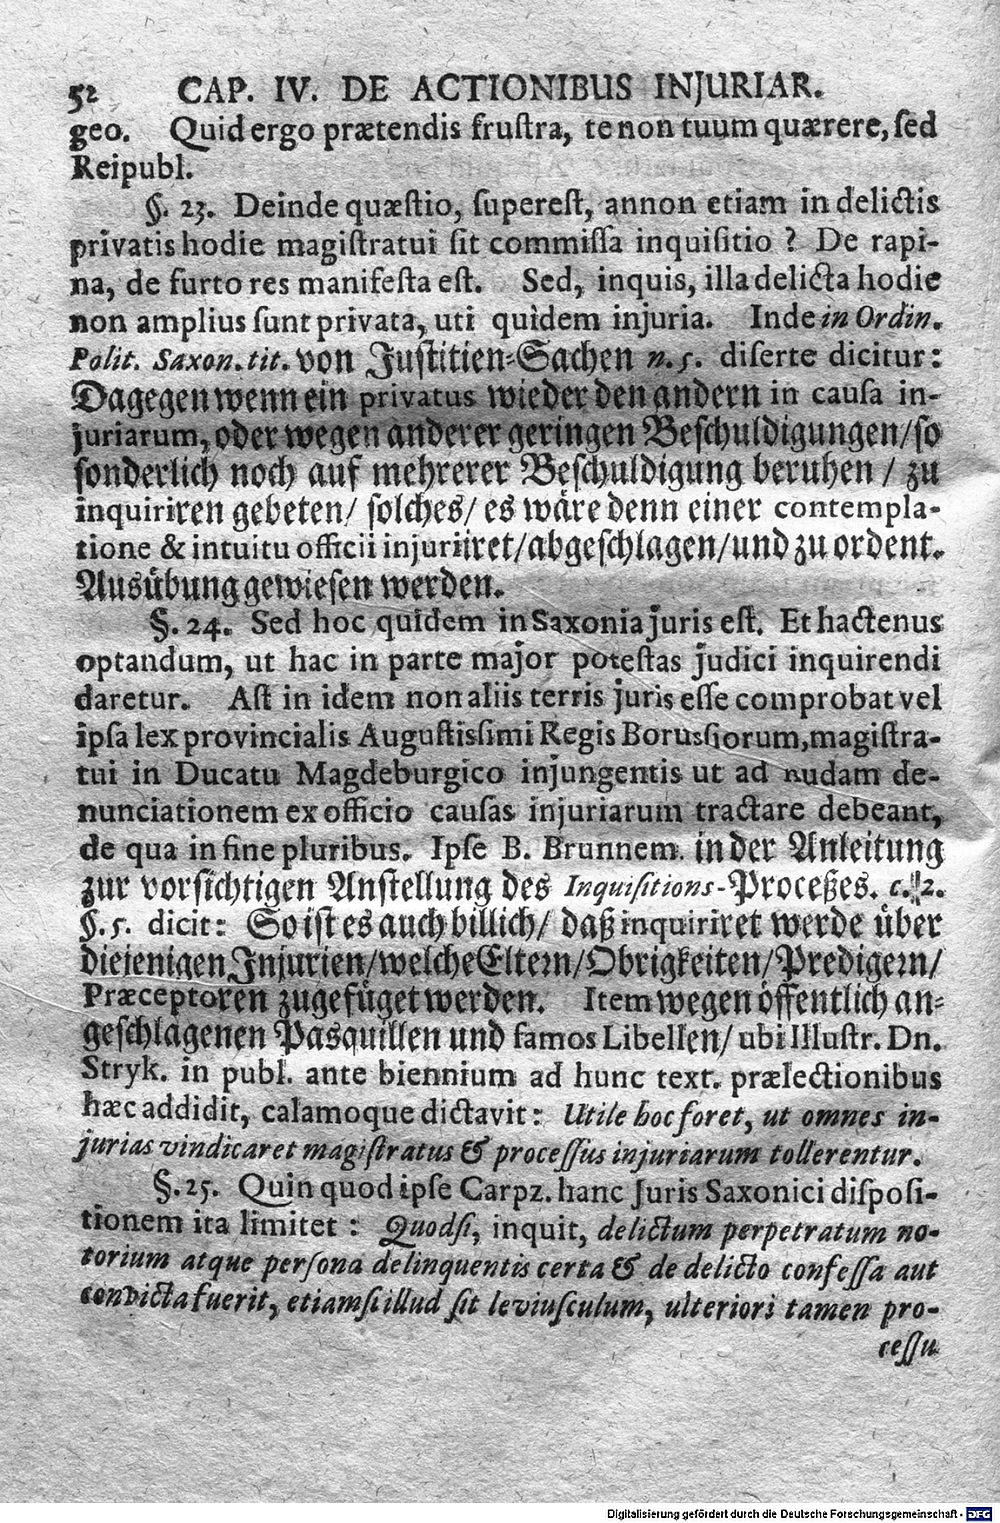 52 CAP. IV. DE ACTIONIBUS INJURIAR.
geo. Quid ergo prætendis fruſtra, te non tuum quærere, ſed
Reipubl.
§. 23. Deinde quæſtio, ſupereſt, annon etiam in delictis
privatis hodie magiſtratui ſit commiſſa inquiſitio ? De rapi-
na, de furto res manifeſta eſt. Sed, inquis, illa delicta hodie
non amplius ſunt privata, uti quidem injuria. Inde in Ordin.
Polit. Saxon. tit. von Juſtitien-Sachen n. 5. diſerte dicitur:
Dagegen wenn ein privatus wieder den andern in cauſa in-
juriarum, oder wegen anderer geringen Beſchuldigungen/ ſo
ſonderlich noch auf mehrerer Beſchuldigung beruhen / zu
inquiriren gebeten/ ſolches/ es wäre denn einer contempla-
tione & intuitu officii injuriiret/ abgeſchlagen/ und zu ordent.
Ausübung gewieſen werden.
§. 24. Sed hoc quidem in Saxonia juris eſt. Et hactenus
optandum, ut hac in parte major poteſtas judici inquirendi
daretur. Aſt in idem non aliis terris juris eſſe comprobat vel
ipſa lex provincialis Auguſtiſſimi Regis Boruſſiorum, magiſtra-
tui in Ducatu Magdeburgico injungentis ut ad nudam de-
nunciationem ex officio cauſas injuriarum tractare debeant,
de qua in fine pluribus. Ipſe B. Brunnem. in der Anleitung
zur vorſichtigen Anſtellung des Inquiſitions-Proceßes. c. 2.
§. 5. dicit: So iſt es auch billich/ daß inquiriret werde über
diejenigen Injurien/ welche Eltern/ Obrigkeiten/ Predigern/
Præceptoren zugefüget werden. Item wegen öffentlich an-
geſchlagenen Pasquillen und famos Libellen/ ubi Illuſtr. Dn.
Stryk. in publ. ante biennium ad hunc text. prælectionibus
hæc addidit, calamoque dictavit: Utile hoc foret, ut omnes in-
jurias vindicaret magiſtratus & proceſſus injuriarum tollerentur.
§. 25. Quin quod ipſe Carpz. hanc Juris Saxonici diſpoſi-
tionem ita limitet : Quodſi, inquit, delictum perpetratum no-
torium atque perſona delinquentis certa & de delicto confeſſa aut
convicta fuerit, etiamſi illud ſit leviuſculum, ulteriori tamen pro-
ceſſu
Digitalisierung gefördert durch die Deutsche Forschungsgemeinschaft - DFG